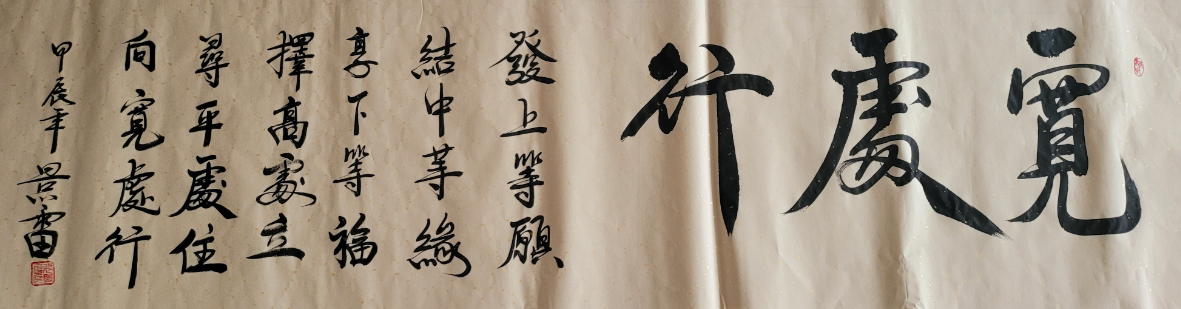 寬處行
發上等願
結中等緣
享下等福
擇高處立
尋平處住
向寬處行
甲辰年 景雷